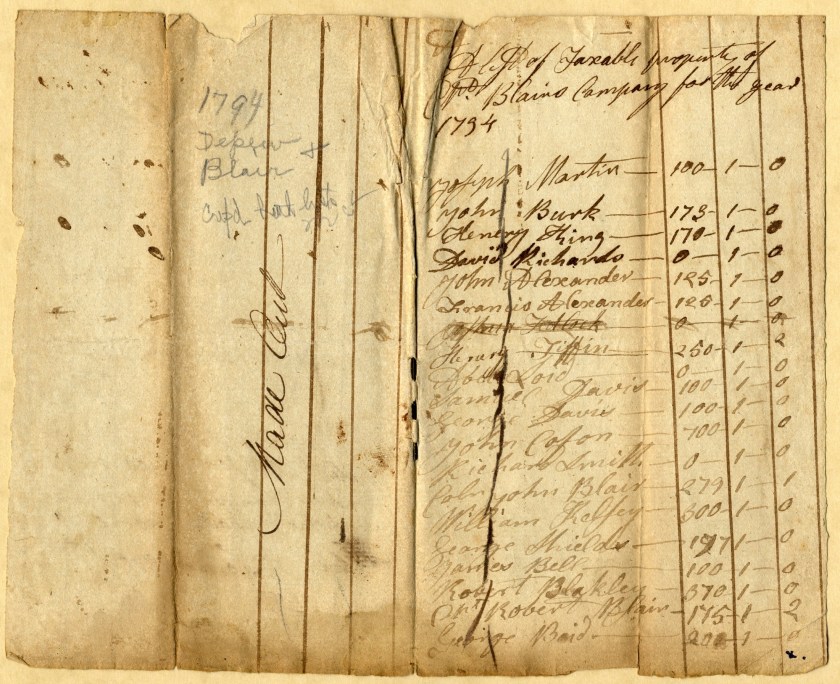 1794
Depew &
Blair
Made Out
A list of Taxable property of
Blairs Company for the year
1794
Joseph Martin — 100 - 1 - 0
John Burk — 173 - 1 - 0
Henery King — 170 - 1 - 0
David Richards — 0 - 1 - 0
John Alexander — 125 - 1 - 0
Francis Alexander - 125 - 1 - 0
0 1 - 0
Henry Tiffin — 250 - 1 - 2
0 - 1 - 0
Samuel Davis — 100 - 1 - 0
George Davis — 100 - 1 - 0
John Cason — 700 - 1 - 0
Richard Smith — 0 - 1 - 0
Coln John Blair — 279 1 - 1
William Kelsey — 300 - 1 - 0
George Shields — 1 - 0
James Bell — 100 1 - 0
Robert Blakley — 370 1 - 0
Robert Blair - 175 - 1 - 2
George - 200 - 1 - 0